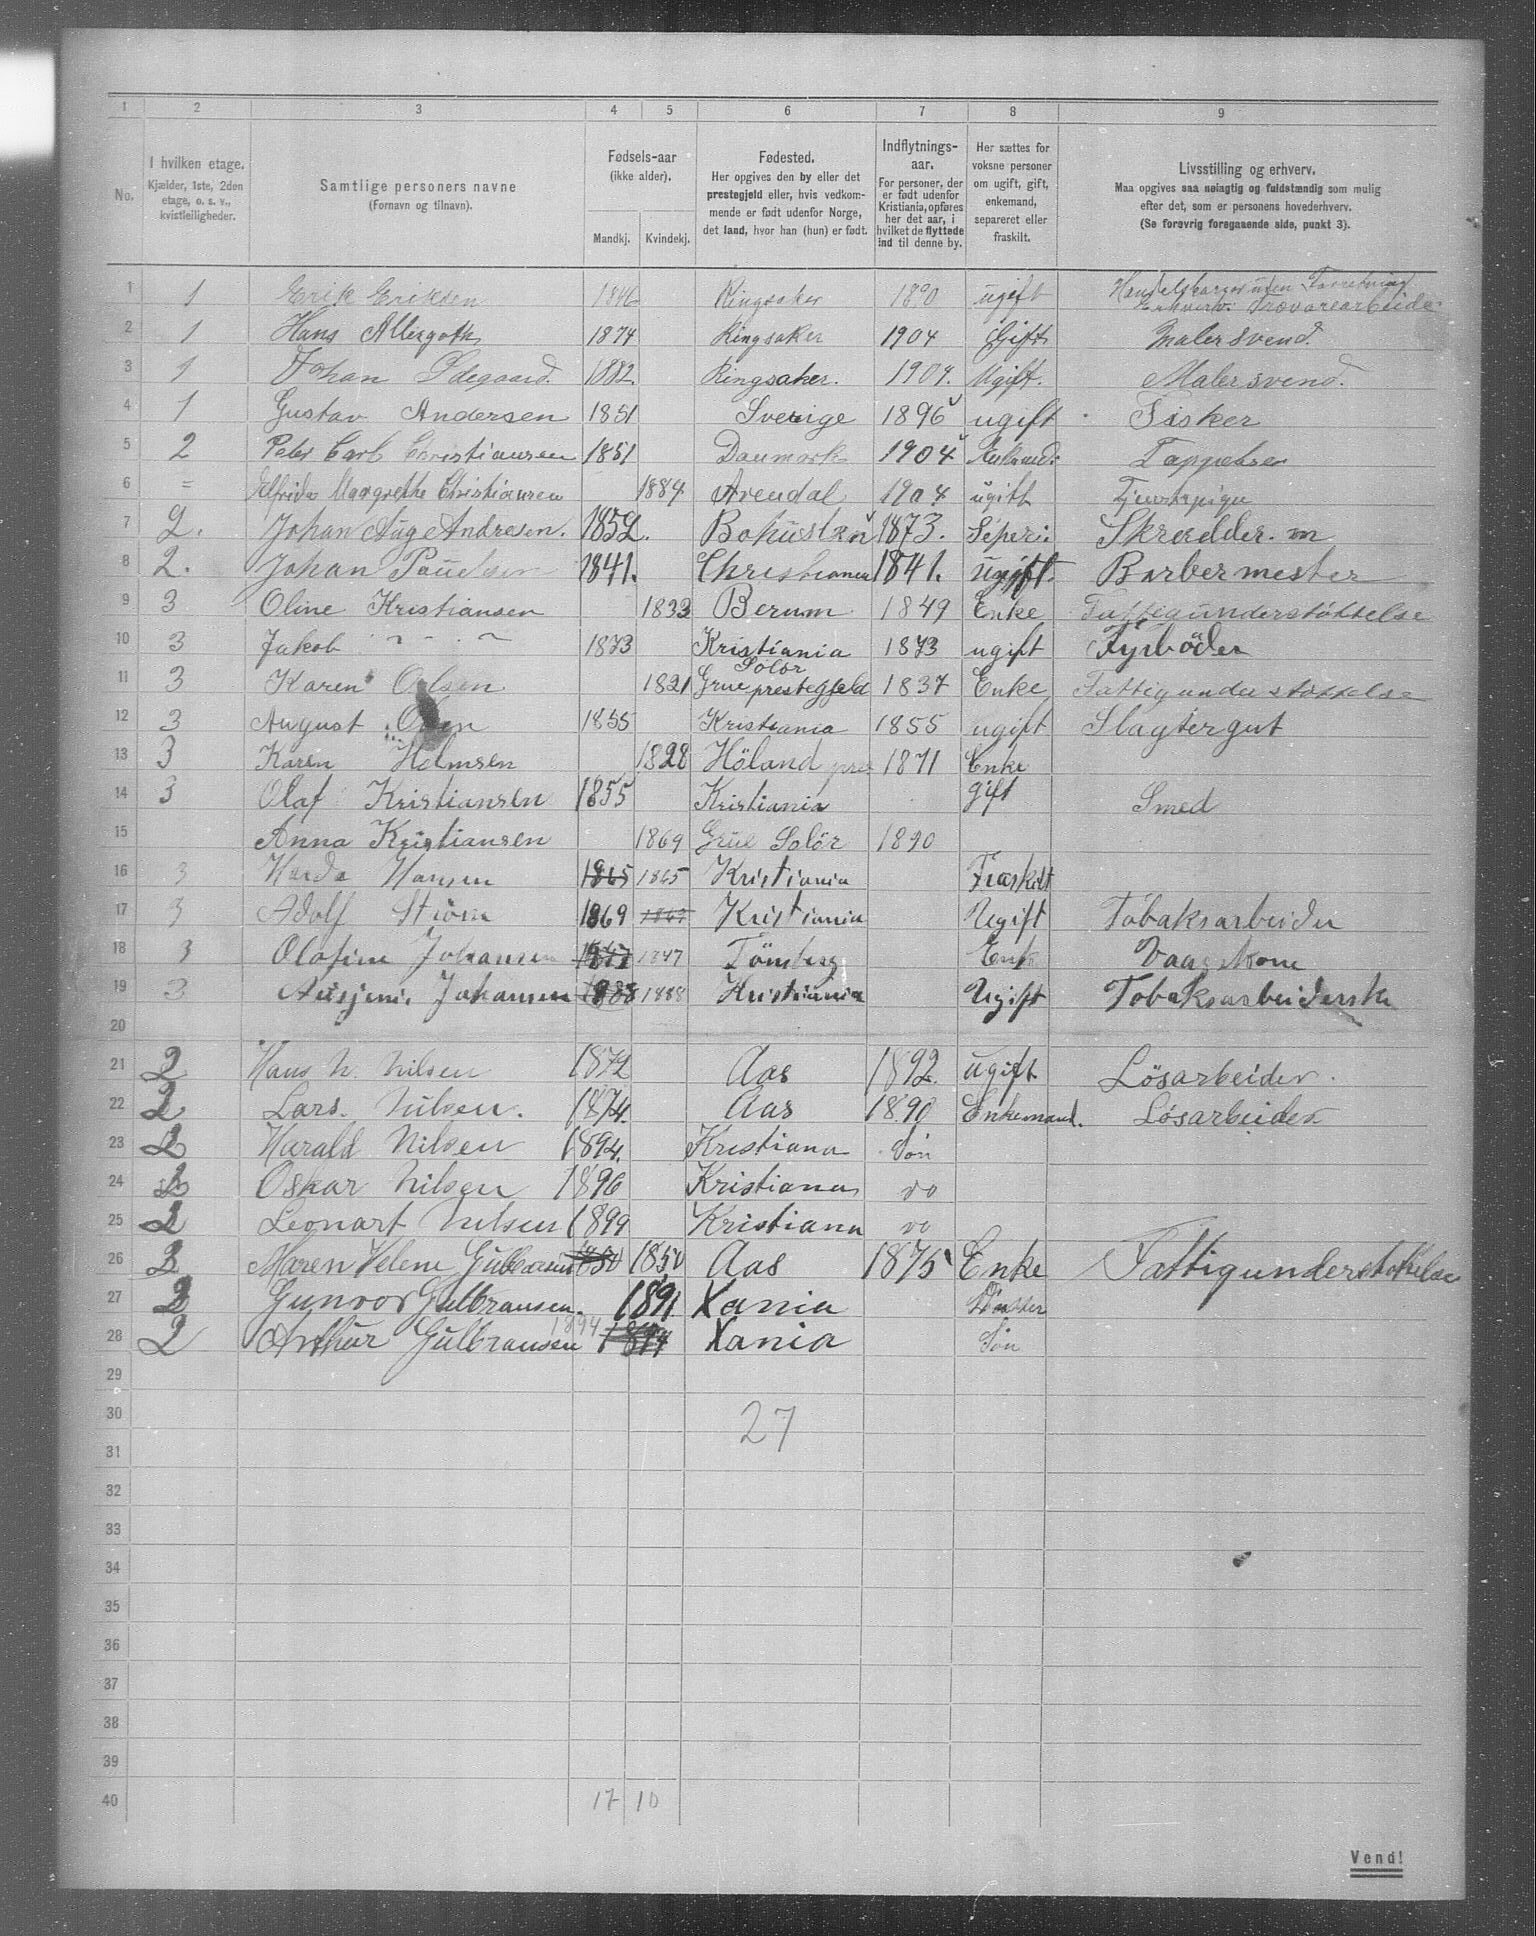 1 2 3 4 5 6 7 8 9
No.
I hvilken etage.
Kjælder, 1ste, 2den
etage, o. s. v.,
kvistleiligheder.
Samtlige personers navne
(Fornavn og tilnavn).
Fødsels-aar
(ikke alder).
Mandkj. Kvindekj.
Fødested.
Her opgives den by eller det
prestegjeld eller, hvis vedkom-
mende er født udenfor Norge,
det land, hvor han (hun) er født.
Indflytnings-
aar.
For personer, der
er født udenfor
Kristiania, opføres
her det aar, i
hvilket de flyttede
ind til denne by.
Her sættes for
voksne personer
om ugift, gift,
enkemand,
separeret eller
fraskilt.
Livsstilling og erhverv.
Maa opgives saa nøiagtig og fuldstændig som mulig
efter det, som er personens hovederhverv.
(Se forøvrig foregaaende side, punkt 3).
1 1 Erik Eriksen 1846 Ringsaker 1890 ugift uden Forretning
Erhverv: Trævarearbeide
2 1 Hans 1874 Ringsaker 1904 Gift Malersvend.
3 1 Johan Ødegaard. 1882. Ringsaker. 1904. Ugift. Malersvend.
4 1 Gustav Andersen 1851 Sverige 1896 ugift Fisker
5 2 Peter Carl Christiansen 1851 Danmark 1904 Tappehser
6 = Elfrida Margrethe Christiansen 1884 Arendal 1904 ugift Tjenstepige
7 2. Johan Aug Andresen. 1852. Bohuslän 1873. Seper: Skrædder. m
8 2. Johan Paulsen 1841. Christiania 1841. ugift Barbermester
9 3 Oline Kristiansen 1833 Berum 1849 Enke Fattigunderstøttelse
10 3 Jakob " - " 1873 Kristiania 1873 ugift Fyrböder
11 3 Karen Olsen 1821 Solör
Grue prestegjeld 1837 Enke Fattigunderstøttelse
12 3 August Olsen 1855 Kristiania 1855 ugift Slagtergut
13 3 Karen Holmsen 1828 Höland pres 1871 Enke
14 3 Olaf Kristiansen 1855 Kristiania gift Smed
15 Anna Kristiansen 1869 Grue Solör 1890
16 3 Hansen 1865 1865 Kristiania Fraskilt
17 3 Adolf Strøm 1869 1869 Kristiania Ugift Tobaksarbeider
18 3 Olafine Johansen 1847 1847 Tönsberg Enke Vaaskone
19 3 Johansen 1888 1888 Kristiania Ugift Tobaksarbeiderske
20
21 2 Hans N. Nilsen 1872 Aas 1892. ugift Lösarbeider.
22 2 Lars. Nilsen. 1874. Aas 1890 Enkemand. Løsarbeider
23 2 Harald Nilsen 1894. Kristiana Sön
24 2 Oskar Nilsen 1896 Kristiana do
25 2 Leonart Nilsen 1899 Kristiana do
26 2 Maren Helene Gulbransen 1850 1850 Aas 1875 Enke Fattigunderstøttelse
27 2 Gunvor Gulbransen. 1891 Xania Datter
28 2 Arthur Gulbransen 1894 1894 Xania Sön
29
30 27
31
32
33
34
35
36
37
38
39
40 17 10
Vend!